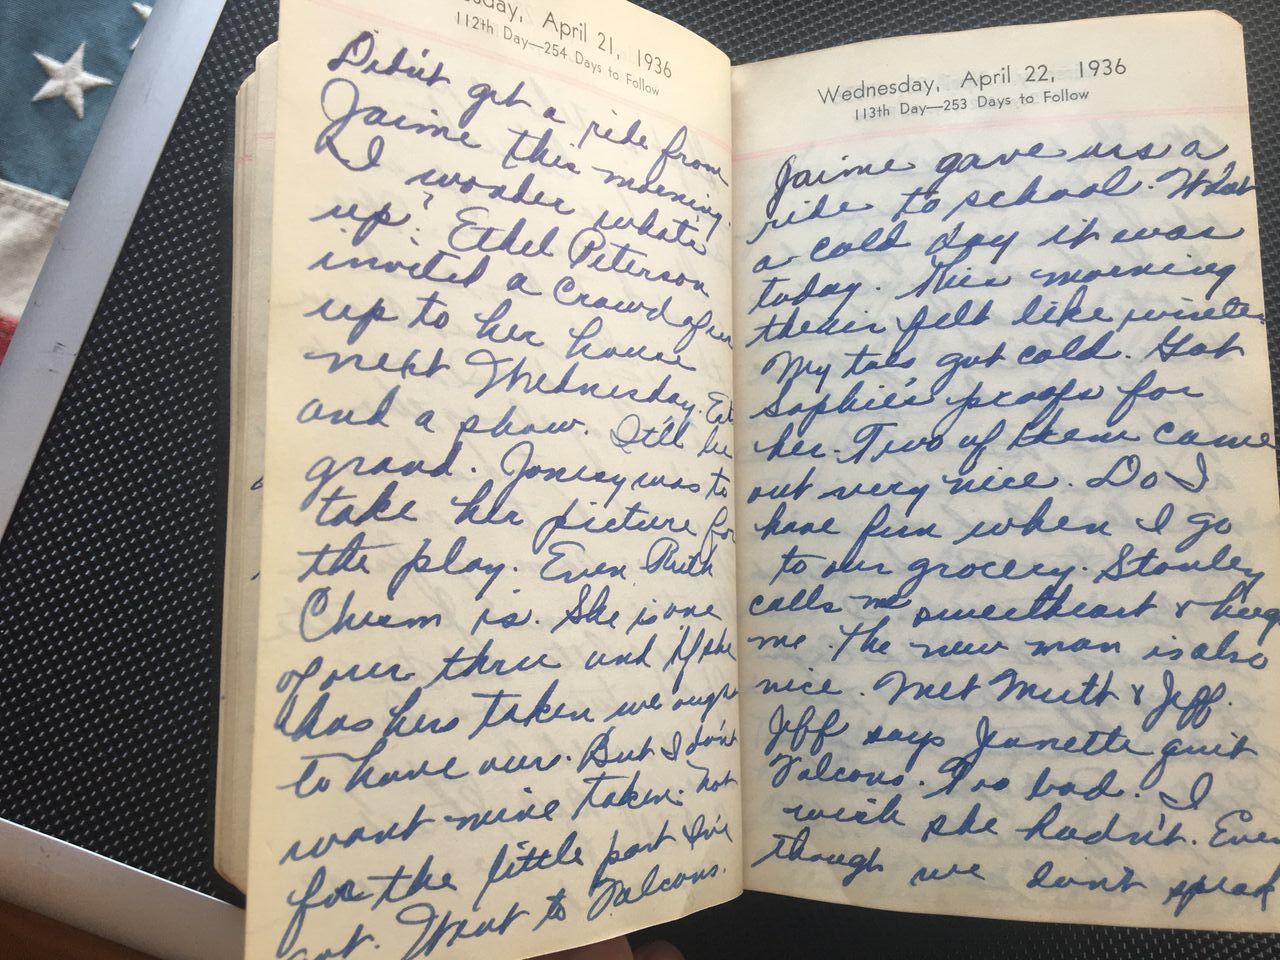 sday, April 21, 1936
112th Day—254 Days to Follow
Didn't get a ride from
Jaime this morning.
I wonder what's
up? Ethel Peterson
invited a crowd of us
up to her house
next Wednesday. Eat
and a show. It'll be
grand. Jonesy was to
take her picture for
the play. Even Ruth
Chism is. She is one
of our three and if she
has hers taken we ought
to have ours. But I don't
want mine taken. Not
for the little part I've
got. Went to Falcons.
Wednesday, April 22, 1936
113th Day—253 Days to Follow
Jaime gave us a
ride to school. What
a cold day it was
today. This morning
their felt like winter.
My toes got cold. Got
Sophie's proofs for
her. Two of them came
out very nice. Do I
have fun when I go
to our grocery. Stanley
calls me sweetheart & hugs
me. The new man is also
nice. Met Mutt & Jeff.
Jeff says Jeanette quit
Falcons. Too bad. I
wish she hadn't. Even
though we don't speak